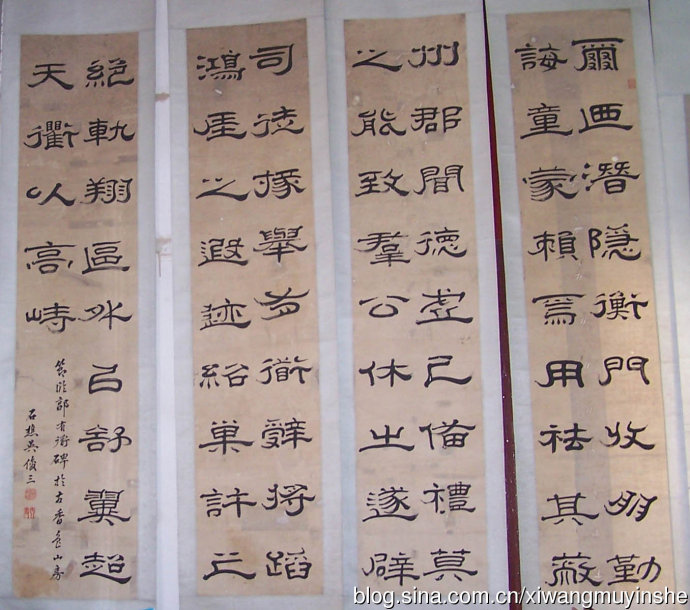 爾迺潛隱衡門收朋勤
誨童蒙賴焉用祛其蔽
州郡聞德虛己備禮莫
之能致羣公休之遂辟
司徒掾舉有道辭將蹈
鴻厓之遐迹紹巢許之
絕軌翔區外㠯舒翼超
天衢以高峙
郭有道碑於古香
山房
石樵吳俊三
blog.sina.com.cn/xiwangmuyinshe